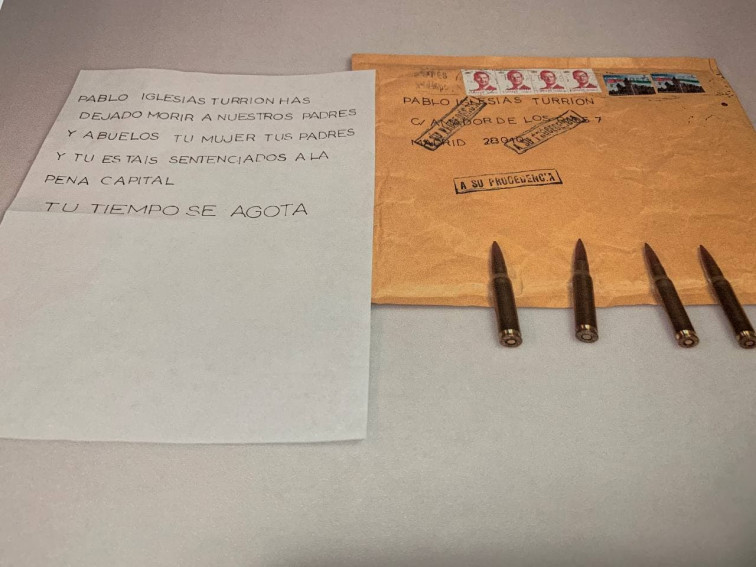 PABLO IGLESIAS TURRION HAS
DEJADO MORIR A NUESTROS PADRES
Y ABUELOS TU MUJER TUS PADRES
Y TU ESTAIS SENTENCIADOS A LA
PENA CAPITAL
TU TIEMPO SE AGOTA
PABLO IGLESIAS TURRION
C/ DE LOS 7
A SU PROCEDENCIA